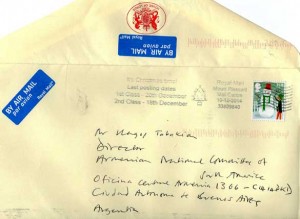 BY AIR MAIL
par avion
Royal Mail
BY AIR MAIL
par avion
Royal Mail
Last posting dates
1st Class - 20th December
2nd Class - 18th December
Royal Mail
Mount Pleasant
Mail Centre
Mr Hagop Tabakian
Director
Armenian National Committee of
South America
Oficina Centro Armenia 1366 -
Ciudad Autonoma de Buenos Aires
Argentina